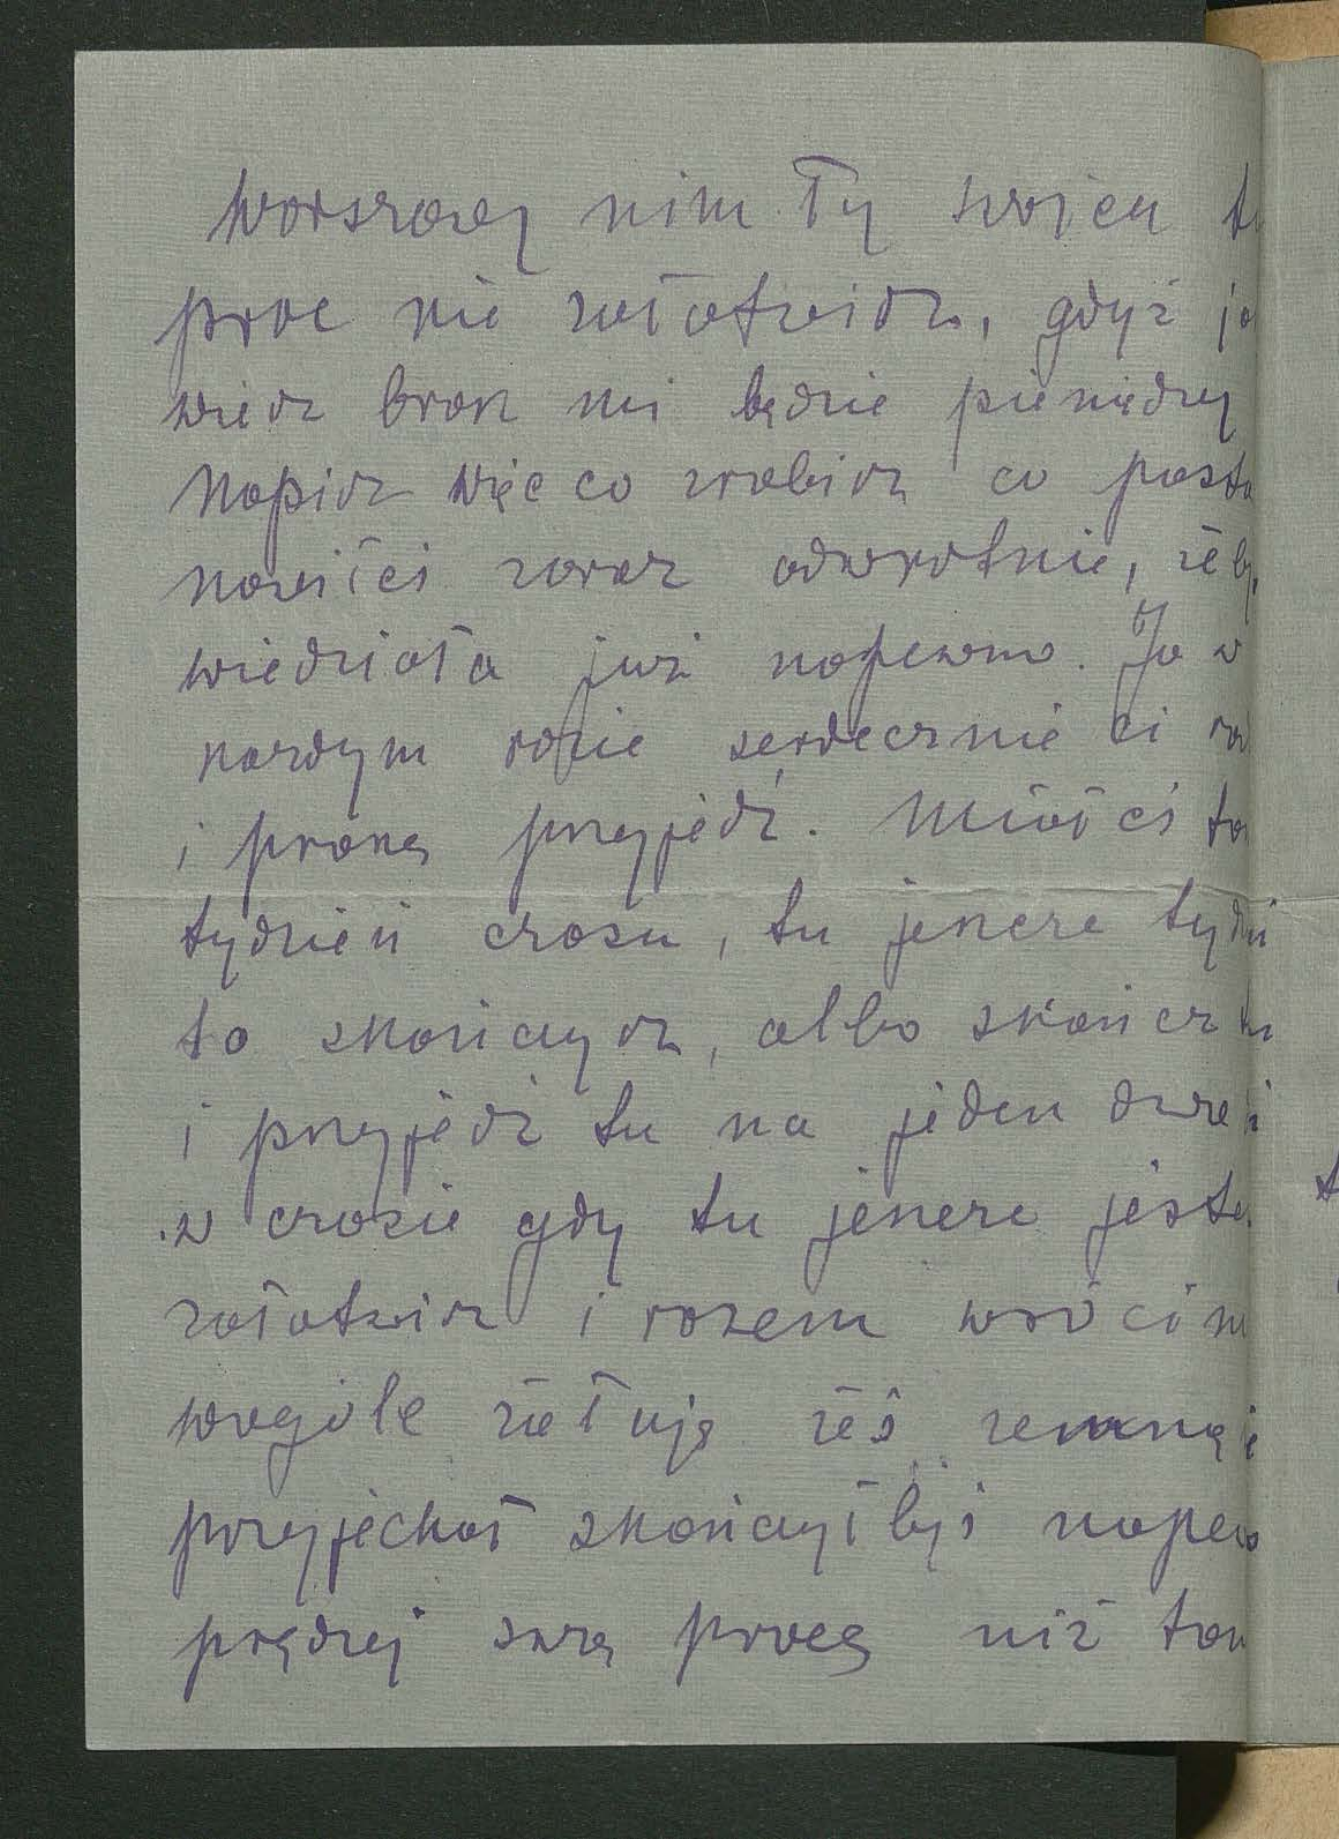 Warszawy nim Ty swoich tu
prac nie załatwisz, gdyż ja
wiesz brak mi będzie pieniędzy
Napisz więc co zrobisz co posta
nowiłeś zaraz odwrotnie, żeby
wiedziała już napewno. Ja w
każdym razie serdecznie Ci ra
i proszę przyjedź. Miałeś ta
tydzień czasu, tu jeszcze tydzi
to skończysz, albo skończ tu
i przyjedź tu na jeden dwa i
w czasie gdy tu jeszcze jeste
załatwisz i razem wrócim
wogóle żałuję żeś zemną
przyjechał skończyłbyś napew
prędzej swą pracę niż tam